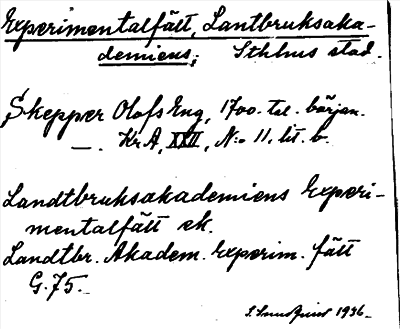 Experimentalfält, Lantbruksaka-
demiens; Sthlms stad.
Skepper Olofs Äng, 1700-tal. början.
—. Kr. A, XXII, N:o 11, lit. b.
Landtbruksakademiens Experi-
mentalfält ek.
Landtbr. Akadem. Experim. fält
G. 75.
1936.